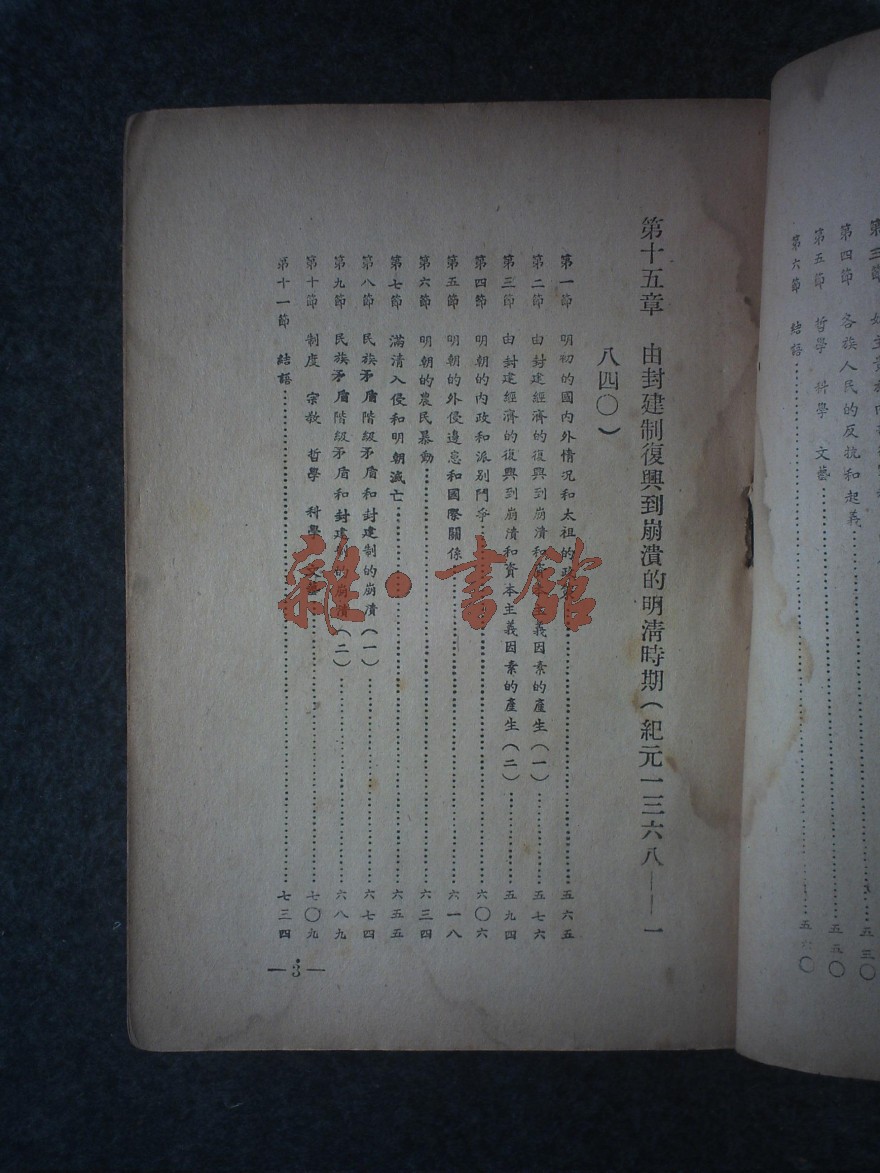 第四節 各族人民的反抗和起義……五三〇
第五節 哲學 科學 文藝……五五〇
第六節 結語……五六〇
第十五章 由封建制復興到崩潰的明清時期(紀元一三六八——一
八四〇)
第一節 明初的國內外情況和太祖的政策……五六五
第二節 由封建經濟的復興到崩潰和資本主義因素的產生(一)……五七六
第三節 由封建經濟的復興到崩潰和資本主義因素的產生(二)……五九四
第四節 明朝的內政和派別鬥爭……六〇六
第五節 明朝的外侵邊患和國際關係……六一八
第六節 明朝的農民暴動……六三四
第七節 滿清入侵和明朝滅亡……六五五
第八節 民族矛盾階級矛盾和封建制的崩潰(一)……六七四
第九節 民族矛盾階級矛盾和封建制的崩潰(二)……六八九
第十節 制度 宗教 哲學 科學 文藝……七〇九
第十一節 結語……七三四
—3—
雜·書館